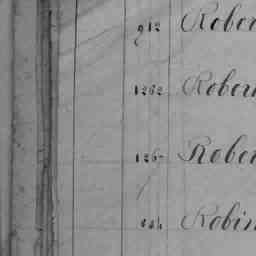 912 Rober
1262 Rober
126 Rober
Robin